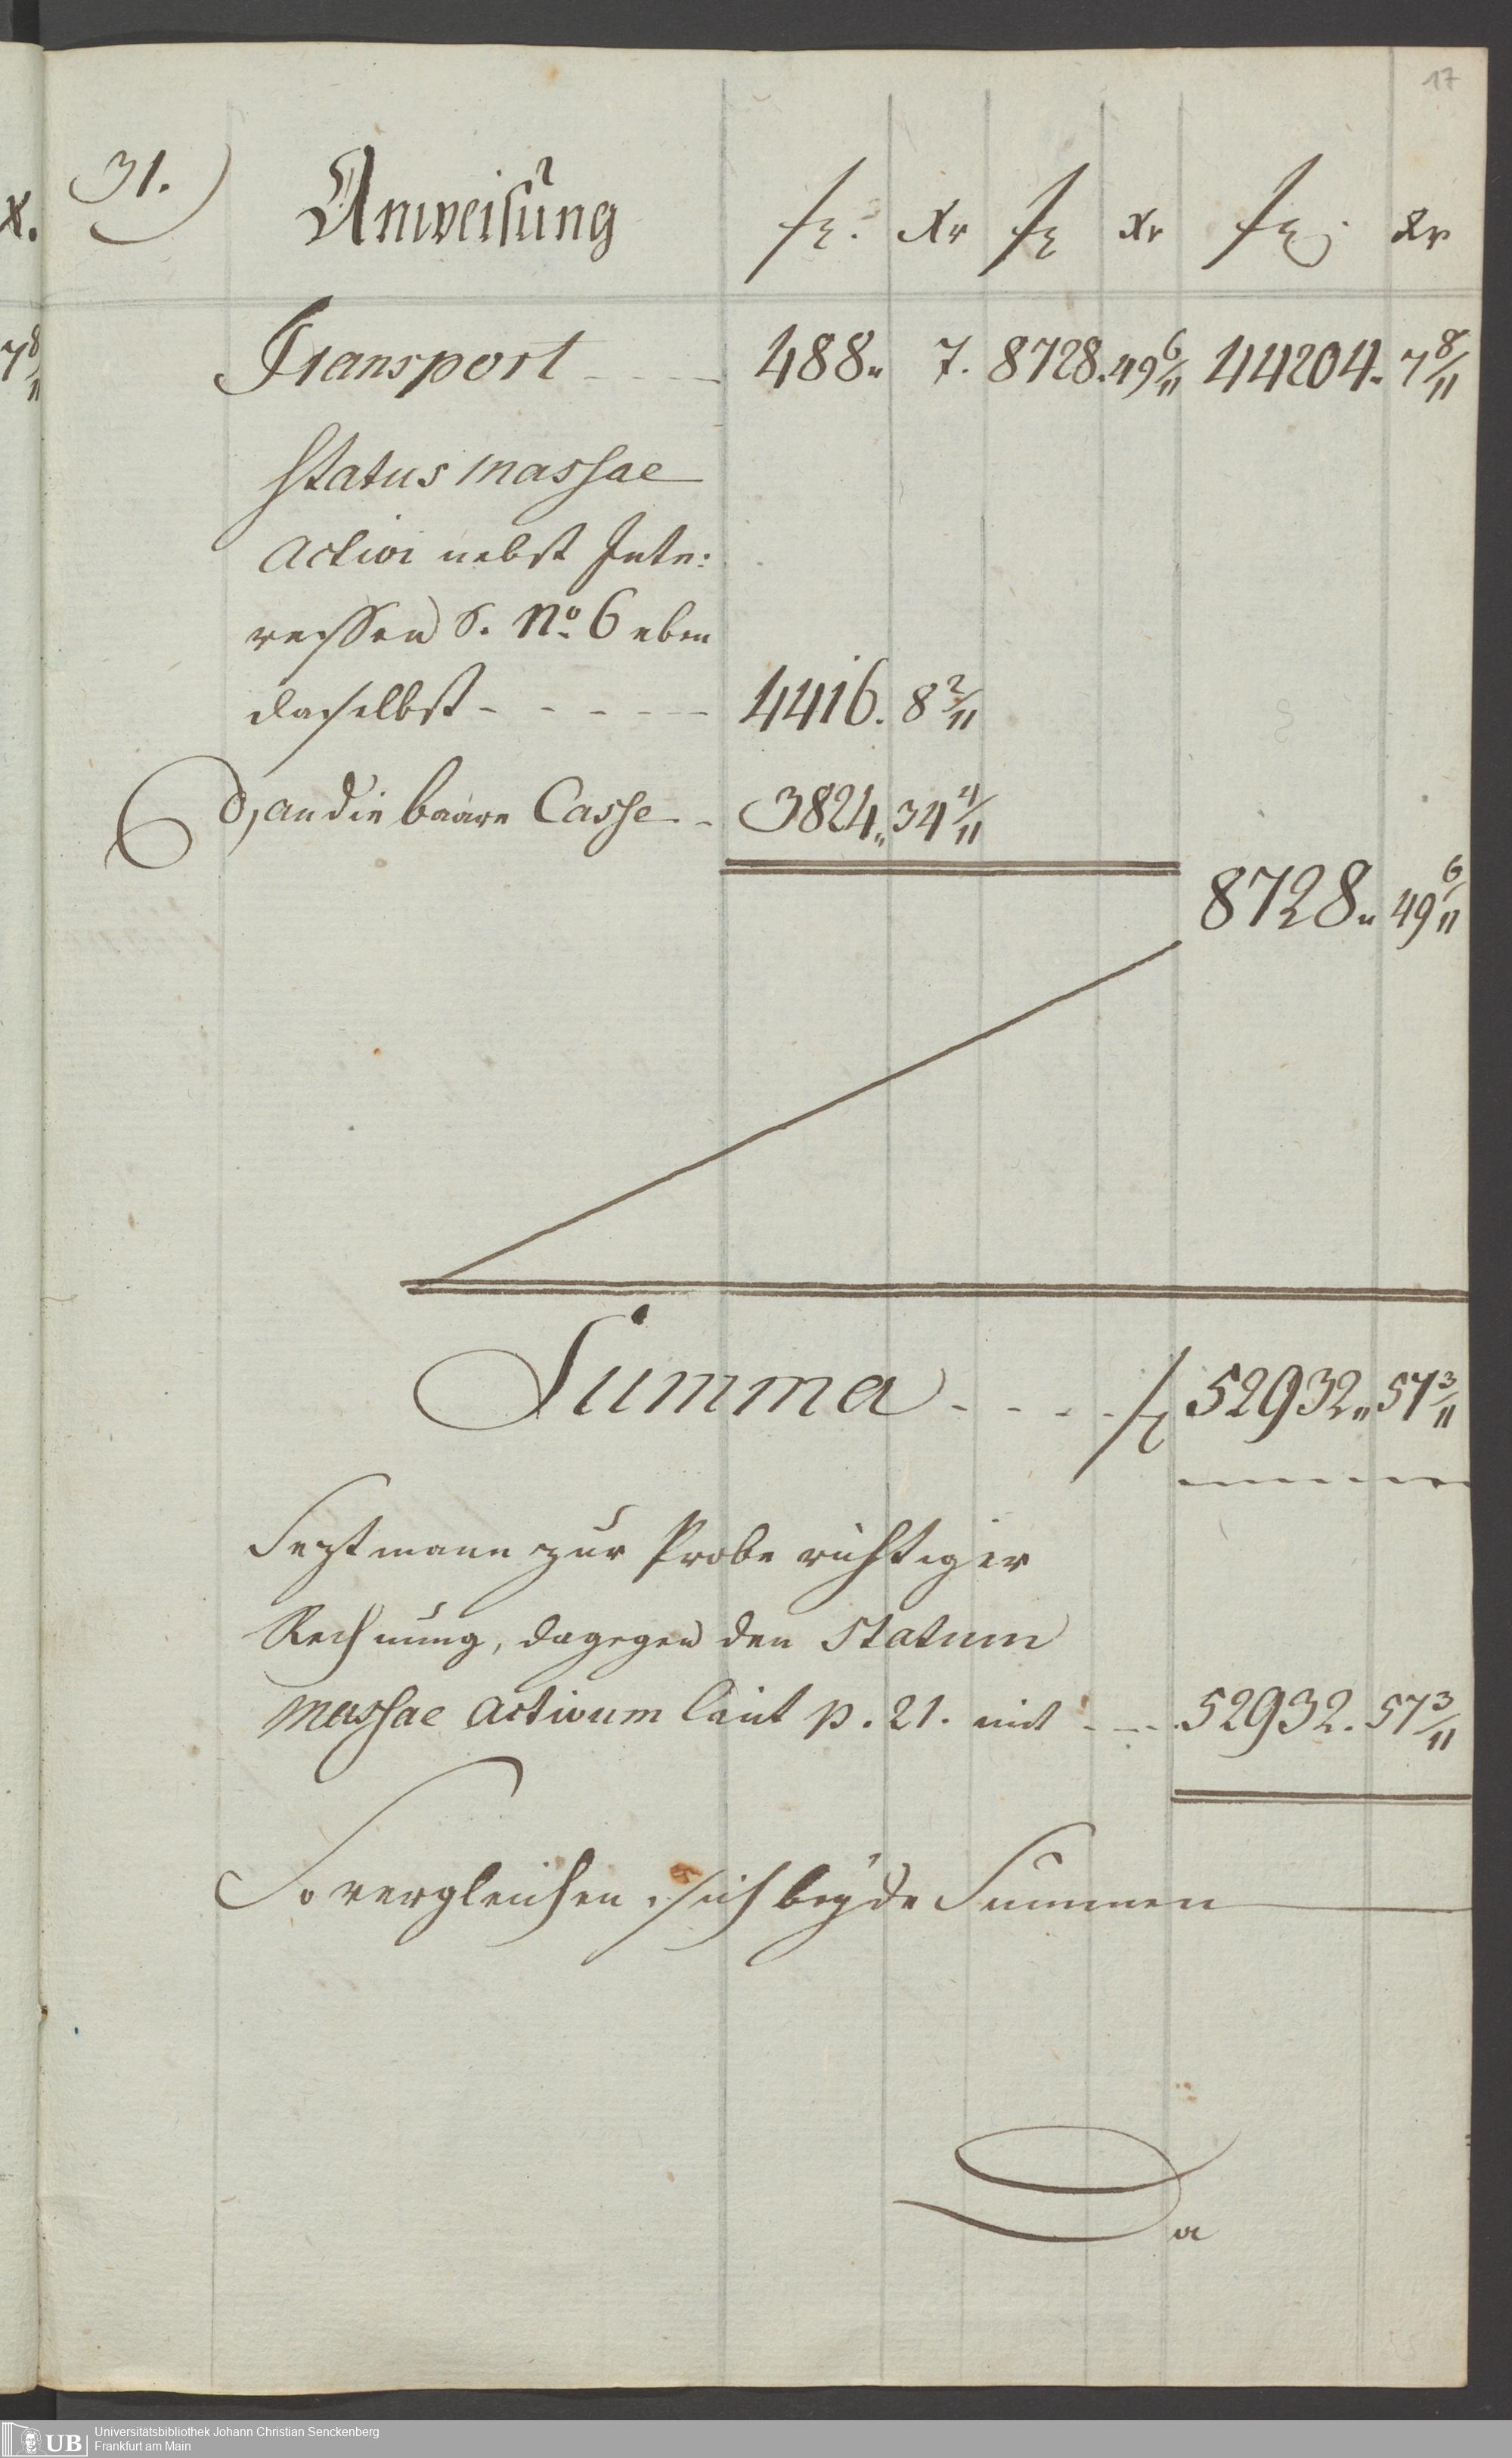 17
31.) Anweisung fl. Xr fl Xr fl. Xr
Transport - - - 488. 7. 8728. 49 6/11 44204. 7 8/11
Status massae
Activi nebst Inte:
ressen S. No. 6 eben
daselbst - - - - - 4416. 8 2/11
d, an die baare Casse - 3824. 34 4/11
8728. 49 6/11
Summa - - - - fl 52932. 57 3/11
Sezt mann zur Probe richtiger
Rechnung, dagegen den Statum
massae activum laut p. 21. mit - - - 52932. 57 3/11
So vergleichen sich beyde Summen
Da
X.
7 8/11
UB
Universitätsbibliothek Johann Christian Senckenberg
Frankfurt am Main